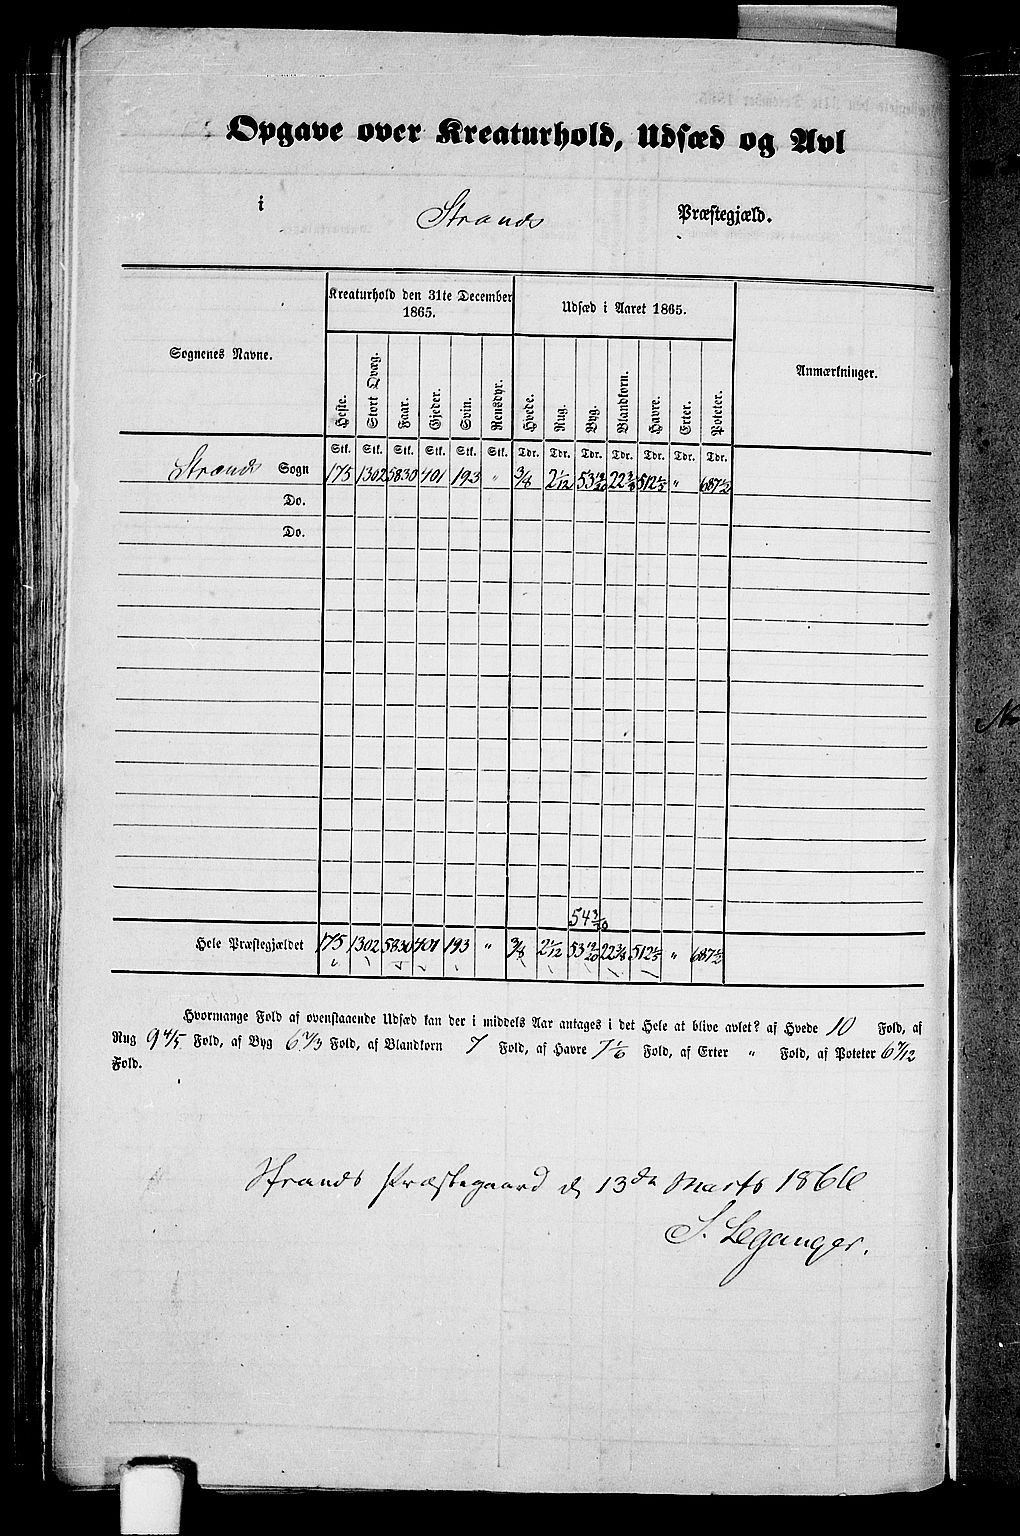 Opgave over Kreaturhold, Udsæd og Avl
i Strands Præstegjæld.
Sognenes Navne. Kreaturhold den 31te December 1865. Udsæd i Aaret 1865. Anmærkninger.
Heste. Stort Qvæg. Faar. Gjeder. Svin. Rensdyr. Hvede. Rug. Byg. Blandkorn. Havre. Erter. Poteter.
Stk. Stk. Stk. Stk. Stk. Stk. Tdr. Tdr. Tdr. Tdr. Tdr. Tdr. Tdr.
Strands Sogn 175 1302 5830 401 193 " 3/8 2 1/12 53 19/20 22 3/8 512 2/5 " 687 1/2
Do.
Do.
54 3/10
Hele Præstegjældet 175 1302 5830 401 193 " 3/8 2 1/12 53 19/20 22 3/8 512 2/5 " 687 1/2
Hvormange Fold af ovenstaaende Udsæd kan der i middels Aar antages i det Hele at blive avlet? af Hvede 10 Fold, af
Rug 9 4/5 Fold, af Byg 6 2/3 Fold, af Blandkorn 7 Fold, af Havre 7 1/6 Fold, af Erter " Fold, af Poteter 6 7/12
Fold.
Strands Præstegaard d 13de Marts 1866
S. Leganger.